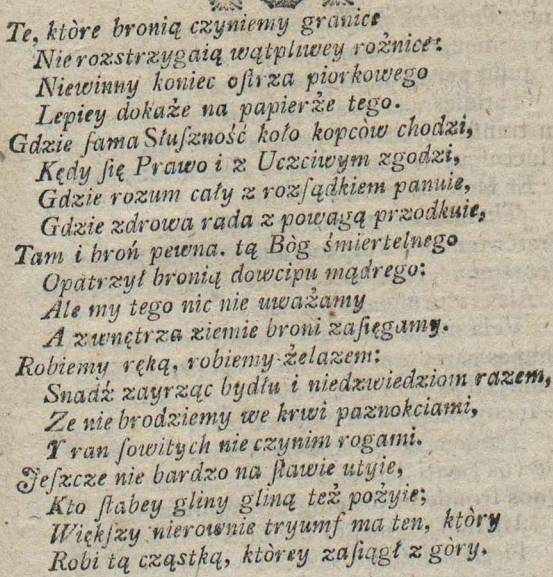 Te, które bronią czyniemy granice
Nie rozstrzygaią wątpliwey rożnice:
Niewinny koniec oſtrza piorkowego
Lepiey dokaże na papierże tego.
Gdzie ſama Słuſzność koło kopcow chodzi,
Kędy ſię Prawo i z Uczciwym zgodzi,
Gdzie rozum cały z rozſądkiem panuie,
Gdzie zdrowa rada z powagą przodkuie,
Tam i broń pewna. tą Bòg śmiertelnego
Opatrzył bronią dowcipu mądrego:
Ale my tego nic nie uważamy
A zwnętrza ziemie broni zaſięgamy.
Robiemy ręką, robiemy żelazem:
Snadź zayrząc bydłu i niedzwiedziom razem,
Ze nie brodziemy we krwi paznokciami,
Y ran ſowitych nie czynim rogami.
Jeſzcze nie bardzo na ſławie utyie,
Kto ſłabey gliny gliną też pożyie;
Więkſzy nierownie tryumf ma ten, ktòry
Robi tą cząstką, ktòrey zaſiągł z gòry.